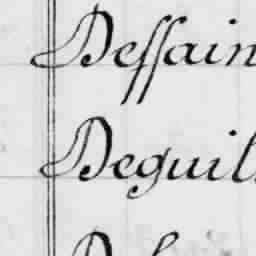 Dessain
Deguil